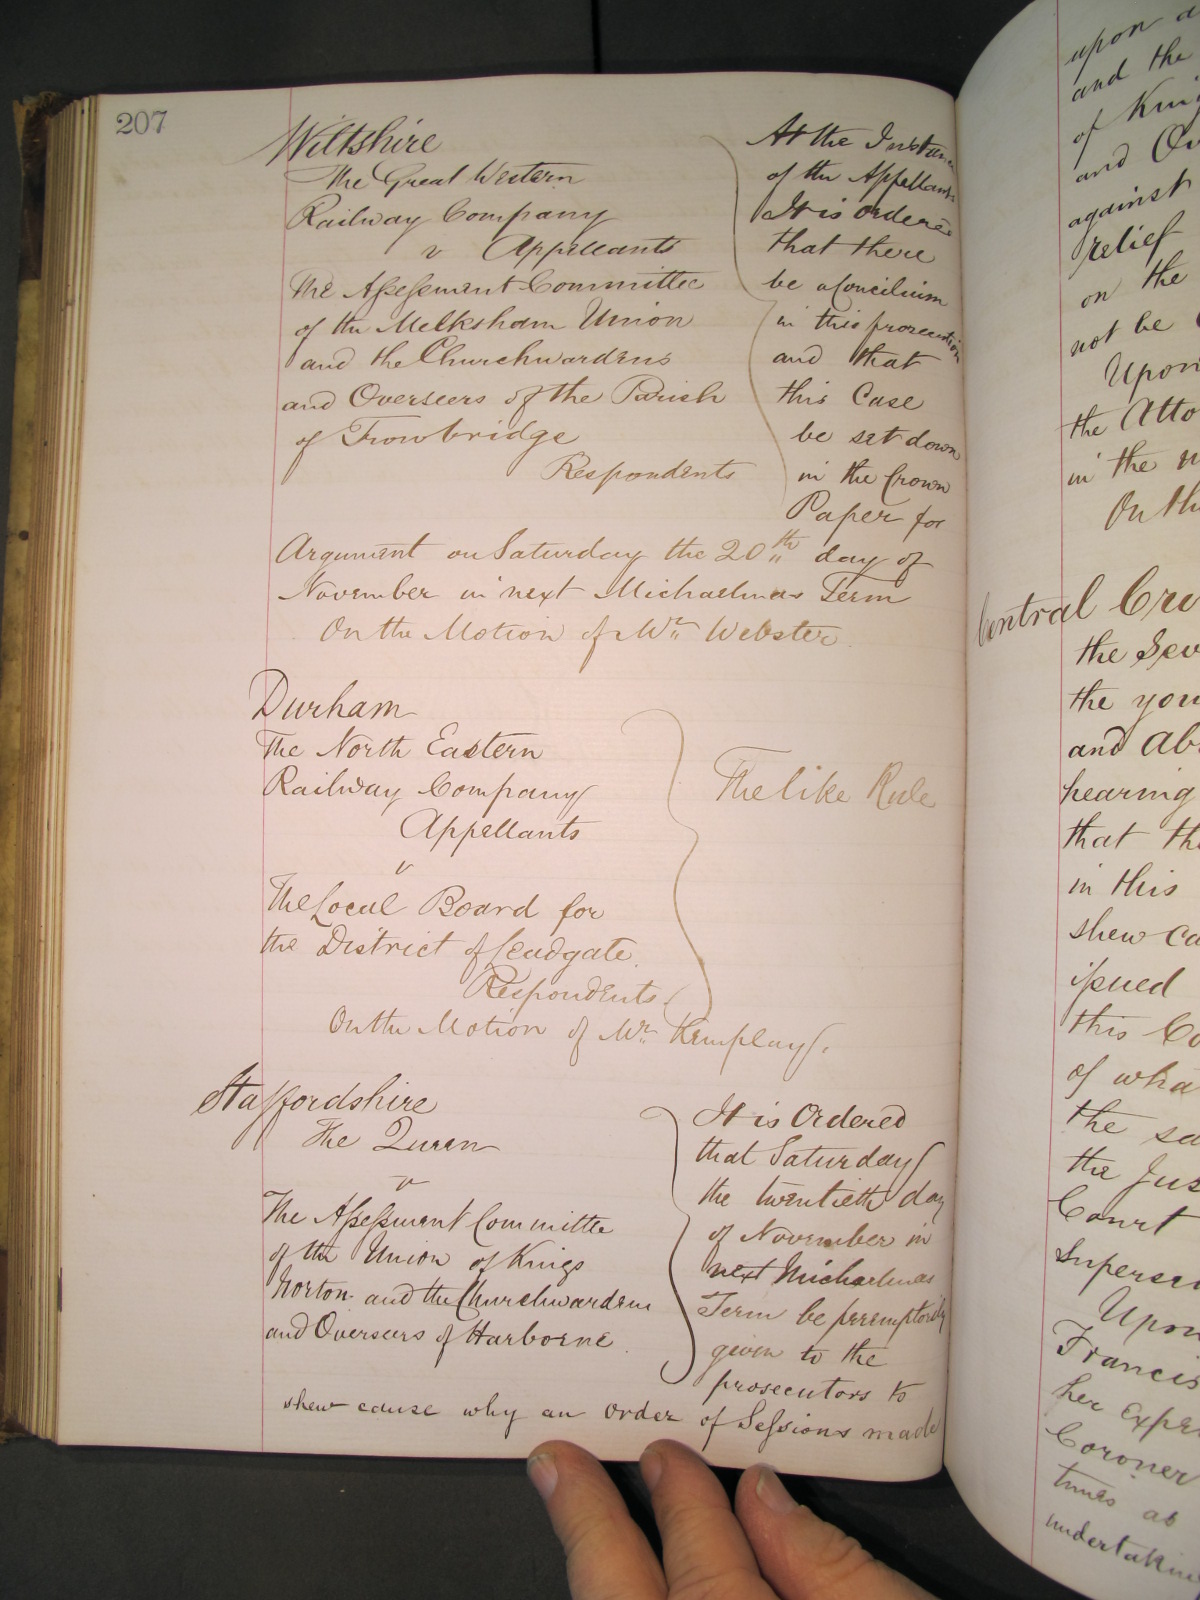 207
Wiltshire
The Great Western
Railway Company
v Appellants
The Assessment Committee
of the Melksham Union
and the Churchwardens
and Overseers of the Parish
of Trowbridge
Respondents
At the Instance
of the Appellants
It is ordered
that there
be a Concilium
in this prosecution
and that
this Case
be set down
in the Crown
Paper for
Argument on Saturday the 20th day of
November in next Michaelmas Term
On the Motion of Mr Webster
Durham
The North Eastern
Railway Company
Appellants
v
The Local Board for
the District of Leadgate
Respondents
The like Rule
On the Motion of Mr Kemplay.
Staffordshire
The Queen
v
The Assessment Committee
of the Union of Kings
Norton and the Churchwardens
and Overseers of Harborne
It is Ordered
that Saturday
the twentieth day
of November in
next Michaelmas
Term be peremptorily
given to the
prosecutors to
shew cause why an order of Sessions made
upon a
and the
of
and
against
relief
on the
not be
Upon
the Atto
in the
On th
Central Cri
the Sev
the you
and ab
hearing
that th
in this
shew ca
issued
this Co
of wha
the sa
the Jus
Court
Superse
Upon
Francis
her expe
Coroner
times as
undertakin